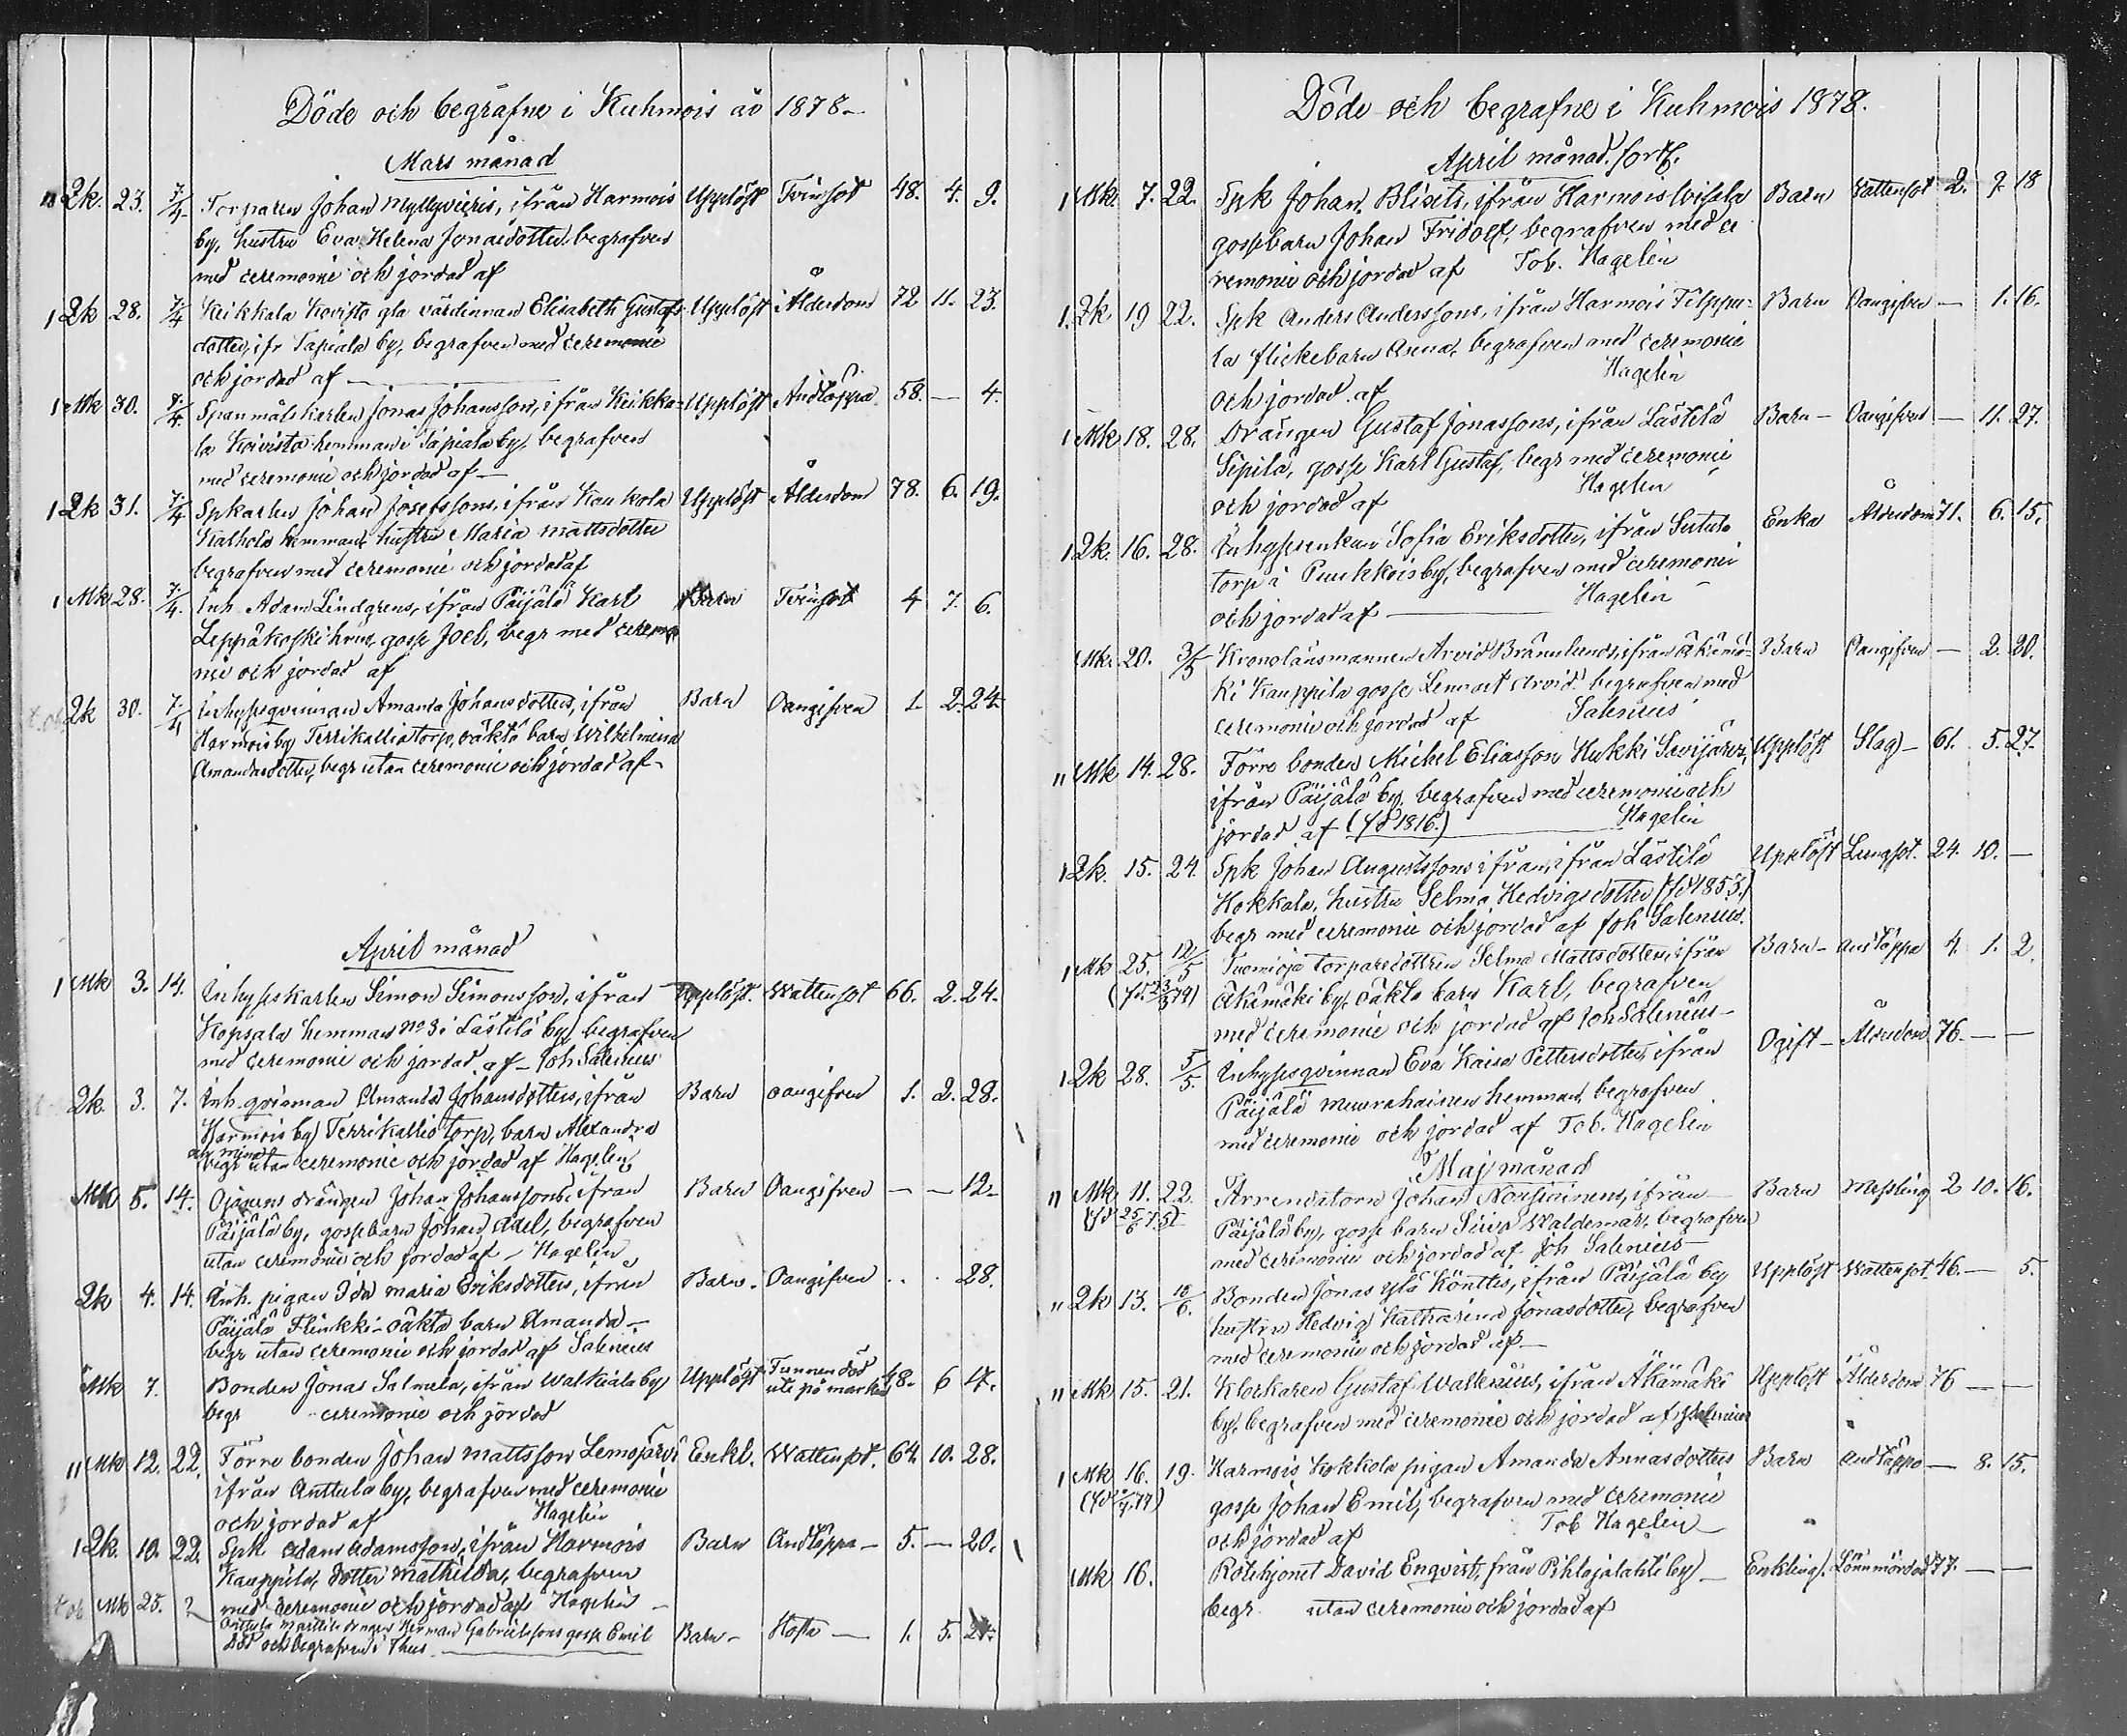 Döde och begrafne i Kuhmois år 1878.
Mars månad
" Qk. 23. 7/4. Torparen Johan Myllyvieris, ifrån Harmois Upplöst Tvinsot 48. 4. 9.
by, hustru Eva Helena Jonasdotter begrafven
med ceremonie och jordad af
1 Qk 28. 7/4 Keikkala Kovisto gla värdinnan Elisabeth Gustafs- Upplöst Ålderdom 72 11. 23.
dotter, ifr Tapiala by, begrafven med ceremonie
och jordad af —
1 Mk 30. 7/4. Spanmålskarlen Jonas Johansson, ifrån Keikka- Upplöst Andtäppa 58. — 4.
la Koivisto hemman i Tapiala by, begrafven
med ceremonie och jordad af —
1 Qk 31. 7/4 Spkarlen Johan Josefssons, ifrån Kaukola Upplöst Ålderdom 78. 6. 19.
hemman, hustru Maria Mattsdotter
begrafven med ceremonie och jordad af
1 Mk 28. 7/4. Inh. Adam Lindgrens, ifrån Päijälä Karl Barn Tvinsot 4 7. 6.
Leppäkoski hem, gosse Joel, begr med ceremo
nie och jordad af
Qk 30. 7/4 Inhysesqvinnan Amanda Johansdotters, ifrån Barn Oangifven 1. 2. 24.
Harmois by Terrikallio torp, oäkta barn Wilhelmina
Amandasdotter, begr utan ceremonie och jordad af —
April månad
1 Mk 3. 14. Inhyseskarlen Simon Simonsson, ifrån Upplöst. Wattensot 66. 2. 24.
Kopsala hemman No 3 i Lästilä by, begrafven
med ceremonie och jordad af — Joh Salenius
Qk. 3. 7. Inh. qvinnan Amanda Johansdotters, ifrån Barn oangifven 1. 2. 28.
Harmois by Terrikallio torp, barn Alexandra
begr utan ceremonie och jordad af Hagelin
Mk 5. 14. Ojanens drängen Johan Johanssons, ifrån Barn Oangifven — — 12.
Päijälä by, gossebarn Johan Axel, begrafven
utan ceremonie och jordad af — Hagelin
Qk 4. 14. Inh. pigan Ida Maria Eriksdotters, ifrån Barn. Oangifven . . 28.
Päijälä Flinkki — oäkta barn Amanda —
begr utan ceremonie och jordad af Salenius
Mk 7. Bonden Jonas Salmela, ifrån Walkiala by Upplöst Funnen död ute på marken 48. 6 17.
begr ceremonie och jordad
" Mk 12. 22. Förre bonden Johan Mattsson Lemojärvi Enkl. Wattensot. 64 10. 28.
ifrån Anttula by, begrafven med ceremonie
och jordad af Hagelin
1 Qk. 10. 22. Spk Adam Adamsson, ifrån Harmois Barn Andtäppa — 5. — 20.
Kauppila, dotter Mathilda, begrafven
med ceremonie och jordad af Hagelin
Mk 25. ? Anttula Marttila drängen Herman Gabrielssons gosse Emil Barn — Hosta — 1. 5.
Död och begrafven i Thus.
Döde och begrafne i Kuhmois 1878.
April månad. forts.
1 Mk. 7. 22. Spk Johan Blixts, ifrån Harmois Barn Wattensot 2. 9. 18
gossebarn Johan Fridolf, begrafven med ce
remonie och jordad af Tob. Hagelin
1. Qk 19 22. Spk Anders Anderssons, ifrån Harmois Filppu- Barn Oangifven — 1. 16.
la flickebarn Asena, begrafven med ceremonie
och jordad af Hagelin
1 Mk 18. 28. Drängen Gustaf Jonassons, ifrån Lästilä Barn — Oangifven — 11. 27.
Sipilä, gosse Karl Gustaf, begr med ceremonie
och jordad af Hagelin
1 Qk. 16. 28. Inhysesenkan Sofia Eriksdotter, ifrån Enka Ålderdom 71. 6. 15.
torp i Puukkois by, begrafven med ceremonie
och jordad af — Hagelin
Mk. 20. 3/5 Kronolänsmannen Arvid Brännlunds, ifrån Äkämä- Barn Oangifven — 2. 20.
ki Kauppila gosse Lennart Arvid begrafven med
ceremonie och jordad af Salenius
" Mk 14. 28. Förre bonden Michel Eliasson Hukki Sivijärvi, Upplöst Slag — 61. 5. 27.
ifrån Päijälä by, begrafven med ceremonie och
jordad af (fd 1816.) Hagelin
1 Qk. 15. 24. Spk Johan Augustssons ifrån, ifrån Lästilä Upplöst Lungsot. 24. 10. —
Kokkala, hustru Selma Hedvigsdotter (fd 1853.)
begr med ceremonie och jordad af Joh Salenius.
1 Mk 25. 12/5 Tuomioja torparedottren Selma Mattsdotters, ifrån Barn — andtäppa 4. 1. 2.
(fd. 23/3 74) Äkämäki by, oäkta barn Karl, begrafven
med ceremonie och jordad af Joh Salenius —
1 Qk 28. 5/5. Inhysesqvinnan Eva Kaisa Pettersdotter, ifrån Ogift — Ålderdom 76. — —
Päijälä Muurahainen hemman, begrafven
med ceremonie och jordad af Tob. Hagelin
Maj månad
" Mk. 11. 22. Arrendatorn Johan Nousiainens, ifrån — Barn Messling 2 10. 16.
(fd 25/6 75) Päijälä by, gosse barn Waldemar, begrafven
med ceremonie och jordad af Joh Salenius —
" Qk 13. 10/6. Bonden Jonas Ylä Könttis, ifrån Päijälä by Upplöst Wattensot. 46. — 5.
hustru Hedvig Katharina Jonasdotter, begrafven
med ceremonie och jordad af —
" Mk 15. 21. Klockaren Gustaf Wallenius, ifrån Äkämäki Upplöst Ålderdom 76 — —
by, begrafven med ceremonie och jordad af Salenius
1 Mk 16. 19. Harmois Kokkola pigan Amanda Annasdotters Barn andtäppa — 8. 15.
gosse Johan Emil, begrafven med ceremonie
och jordad af Tob Hagelin —
Mk 16. Rotehjonet David Enqvist, från Pihlajalahti by — Enkling. Lönnmördad 77. — —
begr. utan ceremonie och jordad af